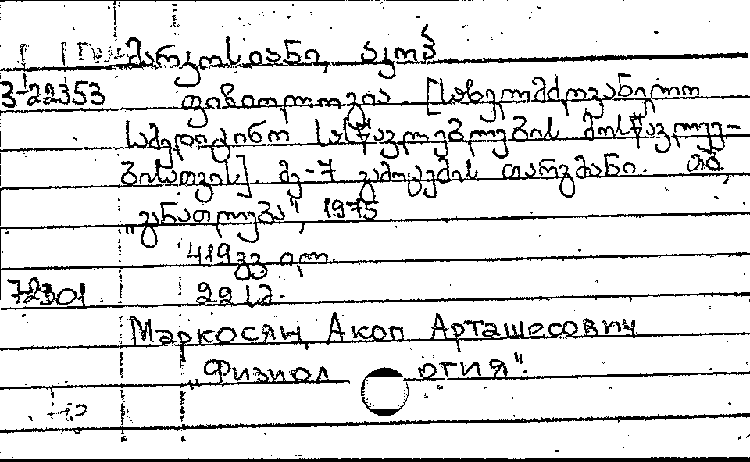 მარკოსიანი, აკოპ
3-22353 ფიზიოლოგია. [სახელმძღვანელო
სამედიცინო სასწავლებლების მოსწავლეე-
ბისათვის]. მე-7 გამოცემის თარგმანი. თბ.
„განათლება", 1975
419 გვ. ილ.
72301 22 სმ.
Маркосян, Акоп Арташесович
„Физиология".